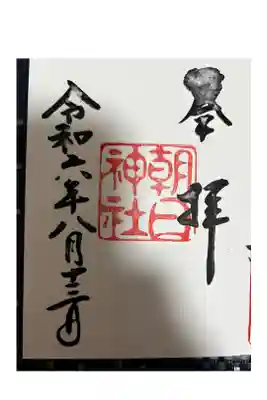 奉拝
朝日神社
令和六年八月十三日